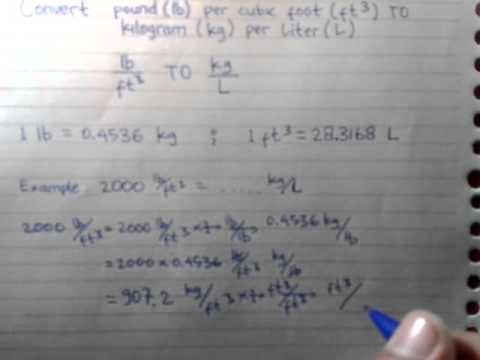 Convert pound (lb) per cubic foot (ft³) TO
kilogram (kg) per Liter (L)
lb/ft³ TO kg/L
1 lb = 0.4536 kg ; 1 ft³ = 28.3168 L
Example 2000 lb/ft³ = ...... kg/L
2000 lb/ft³ = 2000 lb/ft³ × lb/lb 0.4536 kg/lb
= 2000 × 0.4536 lb/ft³ kg/lb
= 907.2 kg/ft³ × ft³/ft³ ft³/